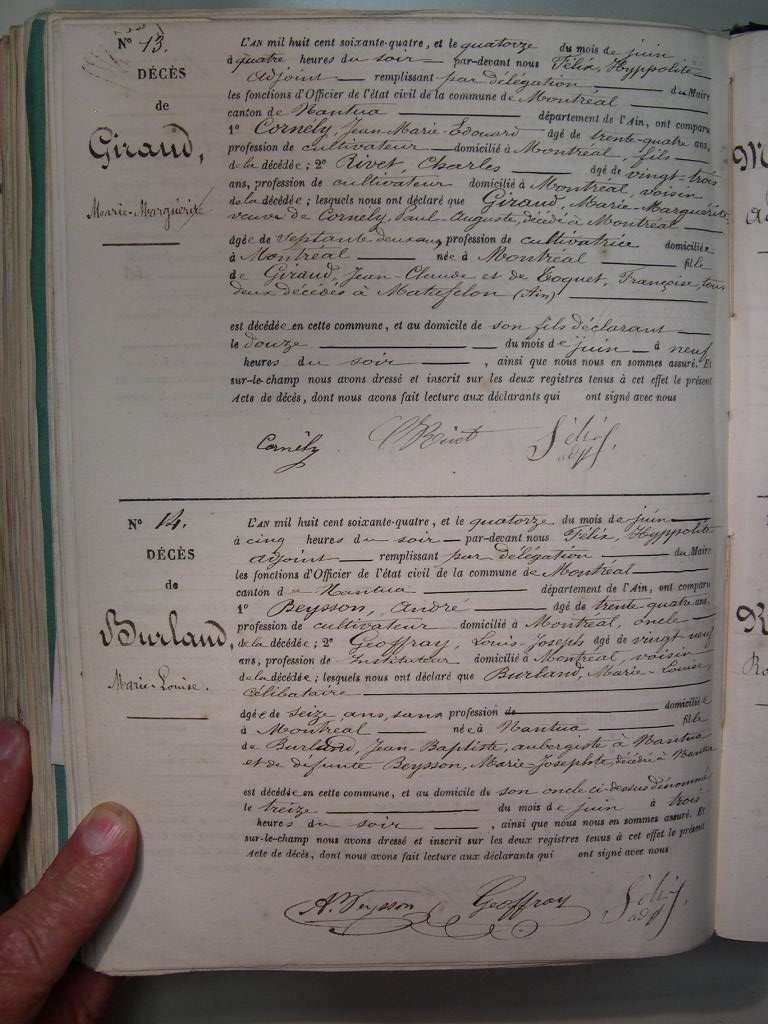 N° 13.
DÉCÈS
de
Giraud,
Marie-Marguerite
L'AN mil huit cent soixante-quatre, et le quatorze du mois de juin
à quatre heures du soir par-devant nous Félix, Hyppolite
adjoint remplissant par délégation, du Maire
les fonctions d'Officier de l'état civil de la commune de Montréal
canton de Nantua département de l'Ain, ont comparu
1° Cornély, Jean-Marie-Edouard âgé de trente-quatre ans,
profession de cultivateur domicilié à Montréal, fils
de la décédée; 2° Rivet, Charles âgé de vingt-trois
ans, profession de cultivateur domicilié à Montréal, voisin
de la décédée; lesquels nous ont déclaré que Giraud, Marie-Marguerite
veuve de Cornély, Paul-Auguste, décédé à Montréal
âgée de septante deux ans, profession de cultivatrice domiciliée
à Montréal née à Montréal fille
de Giraud, Jean-Claude et de Goguet, Françoise, tous
deux décédés à Matafelon (Ain)
est décédée en cette commune, et au domicile de son fils déclarant
le douze du mois de juin à neuf
heures du soir, ainsi que nous nous en sommes assuré. Et
sur-le-champ nous avons dressé et inscrit sur les deux registres tenus à cet effet le présent
Acte de décès, dont nous avons fait lecture aux déclarants qui ont signé avec nous
Cornély Félix adjt.
N° 14.
DÉCÈS
de
Burland,
Marie-Louise.
L'AN mil huit cent soixante-quatre, et le quatorze du mois de juin
à cinq heures du soir par-devant nous Félix, Hyppolite
adjoint remplissant par délégation du Maire
les fonctions d'Officier de l'état civil de la commune de Montréal
canton de Nantua département de l'Ain, ont comparu
1° Beysson, André âgé de trente quatre ans,
profession de cultivateur domicilié à Montréal, oncle
de la décédée; 2° Geoffray, Louis-Joseph âgé de vingt neuf
ans, profession de Instituteur domicilié à Montréal, voisin
de la décédée; lesquels nous ont déclaré que Burland, Marie-Louise,
célibataire
âgée de seize ans, sans profession de domiciliée
à Montréal née à Nantua fille
de Burland, Jean-Baptiste, aubergiste à Nantua
et de défunte Beysson, Marie-Josephte, décédée à Nantua
est décédée en cette commune, et au domicile de son oncle ci-dessus dénommé
le treize du mois de juin à trois
heures du soir, ainsi que nous nous en sommes assuré. Et
sur-le-champ nous avons dressé et inscrit sur les deux registres tenus à cet effet le présent
Acte de décès, dont nous avons fait lecture aux déclarants qui ont signé avec nous
A. Beysson Geoffray Félix adjt.